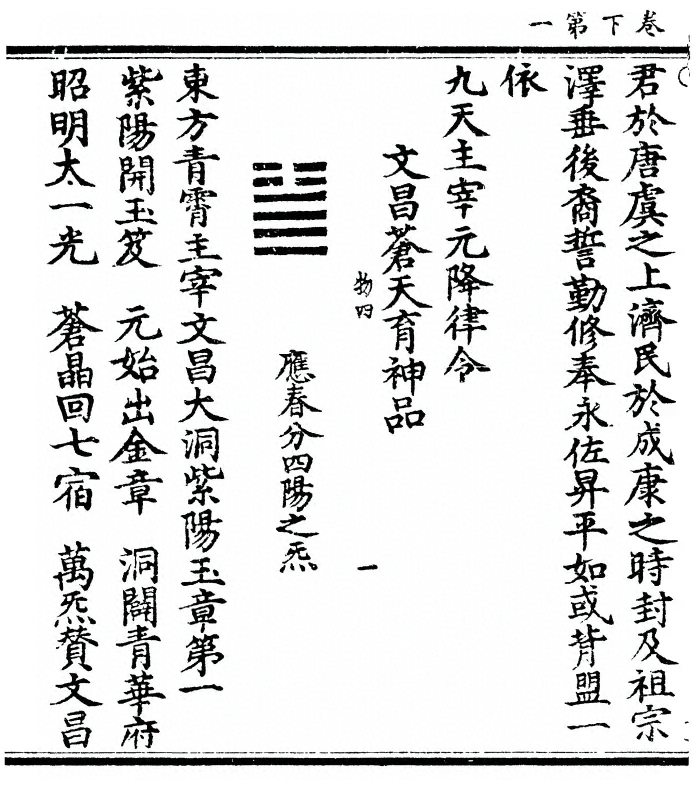 卷下第一
君於唐虞之上濟民於成康之時封及祖宗
澤垂後裔誓勤修奉永佐昇平如或背盟一
依
九天主宰元降律令
文昌蒼天育神品
物四
一
應春分四陽之炁
東方青霄主宰文昌大洞紫陽玉章第一
紫陽開玉笈　元始出金章　洞闢青華府
昭明太一光　蒼晶回七宿　萬炁贊文昌